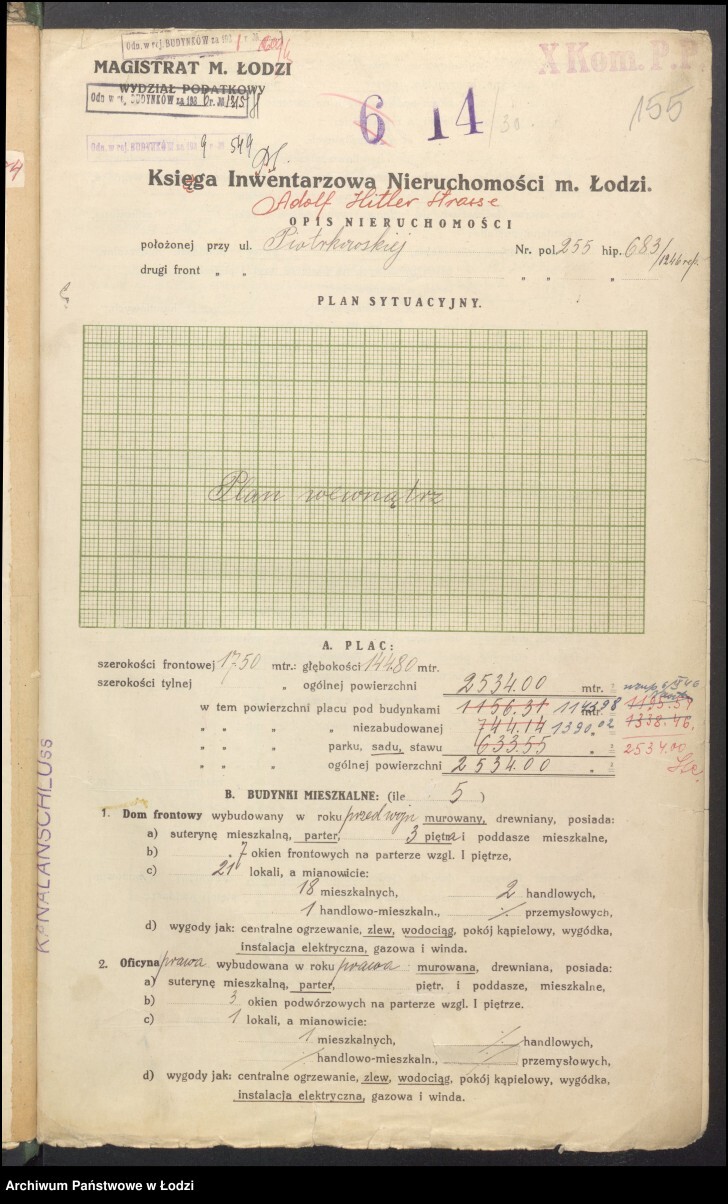 Odn. w rej. BUDYNKÓW za 193
X Kom. P.P.
MAGISTRAT M. ŁODZI
WYDZIAŁ PODATKOWY
BUDYNKÓW za 193
6 14 155
Odn. w rej. BUDYNKÓW za 193 9 549
Księga Inwentarzowa Nieruchomości m. Łodzi.
Adolf Hitler Strasse
OPIS NIERUCHOMOŚCI
położonej przy ul. Piotrkowskiej Nr. pol. 255 hip. 683/1246 rep.
drugi front " " " " "
PLAN SYTUACYJNY.
Plan wewnątrz
A. PLAC:
szerokości frontowej 17.50 mtr.: głębokości 144.80 mtr.
szerokości tylnej " ogólnej powierzchni 2534.00 mtr.
w tem powierzchni placu pod budynkami 1156.31 1143.98 mtr. 1195.54
" " " " niezabudowanej 744.14 1390.02 " 1338.46
" " " parku, sadu, stawu 633.55 " 2534.00
" " " ogólnej powierzchni 2534.00 "
KANALANSCHLUSS
B. BUDYNKI MIESZKALNE: (ile 5 )
1. Dom frontowy wybudowany w roku przed wojn murowany, drewniany, posiada:
a) suterynę mieszkalną, parter, 3 piętra i poddasze mieszkalne,
b) 7 okien frontowych na parterze wzgl. I piętrze,
c) 21 lokali, a mianowicie:
18 mieszkalnych, 2 handlowych,
1 handlowo-mieszkaln., ./. przemysłowych,
d) wygody jak: centralne ogrzewanie, zlew, wodociąg, pokój kąpielowy, wygódka,
instalacja elektryczna, gazowa i winda.
2. Oficyna prawa wybudowana w roku prawa murowana, drewniana, posiada:
a) suterynę mieszkalną, parter, piętr. i poddasze, mieszkalne,
b) 3 okien podwórzowych na parterze wzgl. I piętrze.
c) 1 lokali, a mianowicie:
1 mieszkalnych, ./. handlowych,
/ handlowo-mieszkaln., ./. przemysłowych,
d) wygody jak: centralne ogrzewanie, zlew, wodociąg, pokój kąpielowy, wygódka,
instalacja elektryczna, gazowa i winda.
Archiwum Państwowe w Łodzi